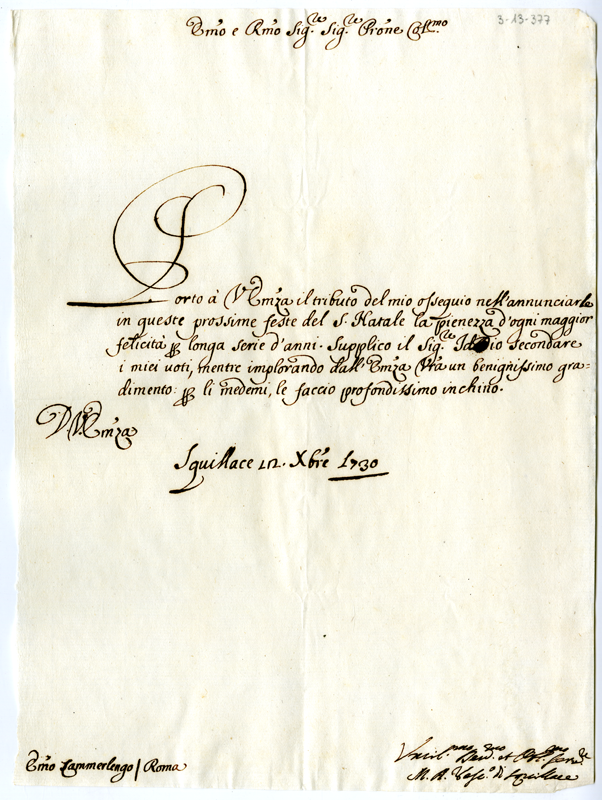 3-13-377
Emo e Rmo Sig.re Sig.re Prone Coll.mo
Porto à V Emza il tributo del mio ossequio nell'annunciarle
in queste prossime feste del S. Natale la pienezza d'ogni maggior
felicità p longa serie d'anni. Supplico il Sig.re Iddio Secondare
i miei voti, mentre implorando dall'Emza Vra un benignissimo gra-
dimento p li medemi, le faccio profondissimo inchino.
D.V.Emza
Squillace 12. Xbre 1730
Emo Cammerlengo / Roma
Umil.mo et
M. A. Vesc.o di Squillace